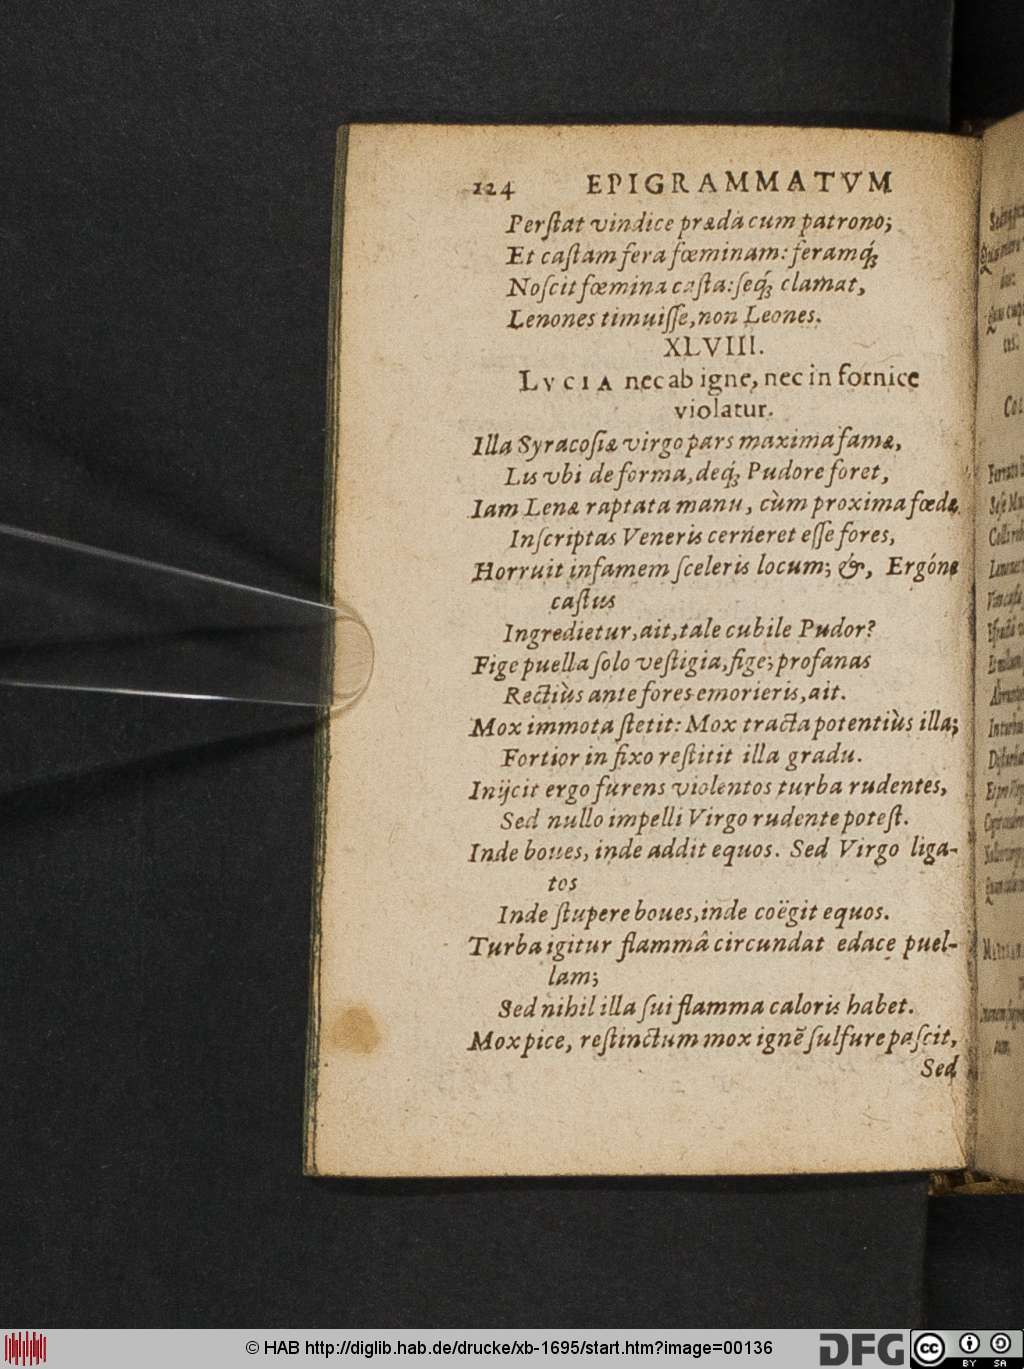 124 EPIGRAMMATVM
Perſtat vindice præda cum patrono;
Et caſtam fera fœminam: feramq́;
Noſcit fœmina caſta: ſeq́; clamat,
Lenones timuiſſe, non Leones.
XLVIII.
LVCIA nec ab igne, nec in fornice
violatur.
Illa Syracoſiæ virgo pars maxima famæ,
Lis vbi de forma, deq́; Pudore foret,
Iam Lenæ raptata manu, cùm proxima fœdæ
Inſcriptas Veneris cerneret eſſe fores,
Horruit infamem ſceleris locum; &, Ergóne
caſtus
Ingredietur, ait, tale cubile Pudor?
Fige puella ſolo veſtigia, fige; profanas
Rectiùs ante fores emorieris, ait.
Mox immota ſtetit: Mox tracta potentiùs illa;
Fortior in fixo reſtitit illa gradu.
Inijcit ergo furens violentos turba rudentes,
Sed nullo impelli Virgo rudente poteſt.
Inde boues, inde addit equos. Sed Virgo liga-
tos
Inde ſtupere boues, inde coëgit equos.
Turba igitur flammâ circundat edace puel-
lam;
Sed nihil illa ſui flamma caloris habet.
Mox pice, reſtinctum mox ignẽ ſulfure paſcit,
Sed
© HAB http://diglib.hab.de/drucke/xb-1695/start.htm?image=00136
DFG
cc
BY SA